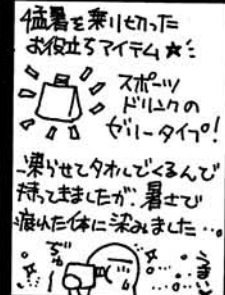 猛暑を乗り切った
お役立ちアイテム☆
スポーツ
ドリンクの
ゼリータイプ!
凍らせてタオルでくるんで
持ってきましたが、暑さで
疲れた体に染みました…。
ぢゅー
うまい